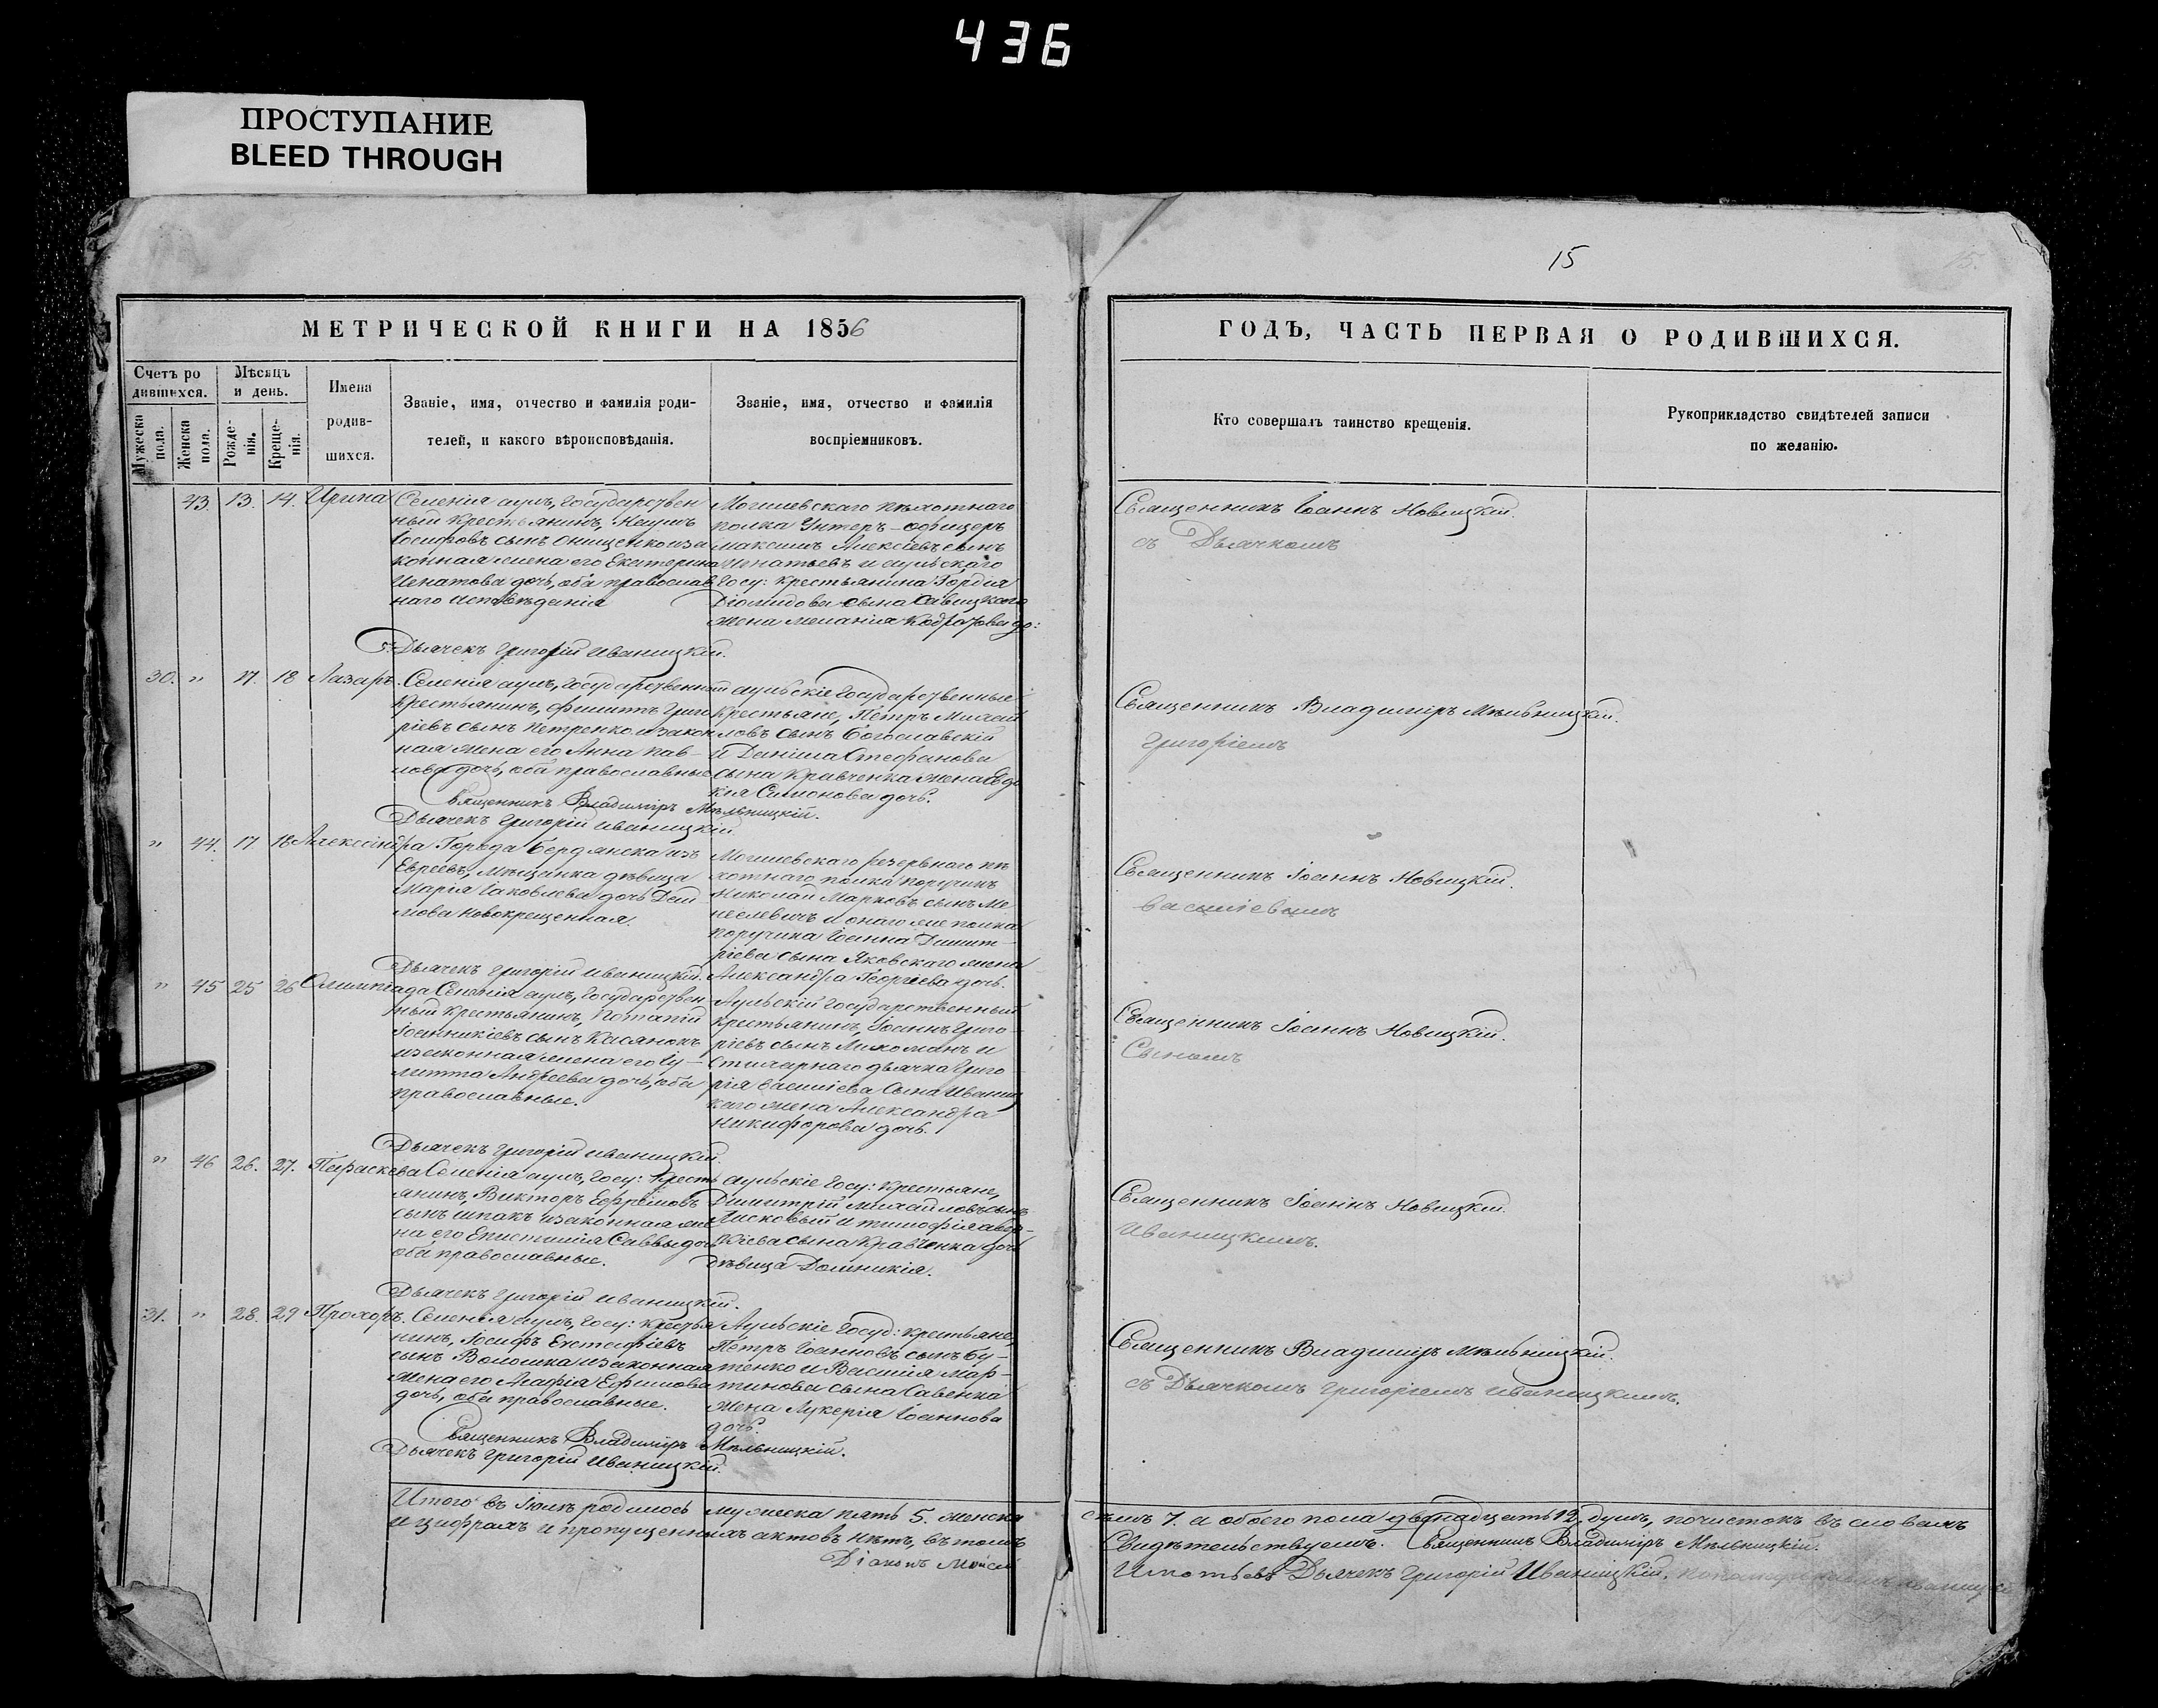 436
ПРОСТУПАНИЕ
BLEED THROUGH
15
15.
МЕТРИЧЕСКОЙ КНИГИ НА 1856
Счетъ ро
дившихся.
Мѣсяцъ
и день.
Мужеска
пола.
Женска
пола.
Рожде-
нія.
Креще-
нія.
Имена
родив-
шихся.
Званіе, имя, отчество и фамилія роди-
телей, и какого вѣроисповѣданія.
Званіе, имя, отчество и фамилія
воспріемниковъ.
43. 13. 14. Ирина
Селенія аулъ, Государствен
ный крестьянинъ, Наумъ
Іосифовъ сынъ Онищенко и за
конная жена его Екатерина
Игнатова дочь, оба православ
наго исповѣданія
Могилевскаго пѣхотнаго
полка Унтеръ-офицеръ
Максимъ Алексіевъ сынъ
Игнатьевъ и аульскаго
Госу: крестьянина Гордія
Діомидова сына Савицкаго
жена Меланія Кодратова до:
Дьячекъ Григорій Иваницкій.
30. " 17. 18 Лазаръ.
Селенія аулъ, Государственный
крестьянинъ, Филиппъ Григо
ріевъ сынъ Петренко и закон
ная жена его Анна Пав-
лова дочь, оба православные
аульскіе Государственные
крестьяне, Петръ Михаи
ловъ сынъ Богославскій
и Даніила Стефанова
сына Кравченка жена Евдо
кія Симонова дочь.
Священникъ Владиміръ Мѣльницкій.
Дьячекъ Григорій Иваницкій
" 44. 17 18 Александра
Города Бердянска изъ
Евреевъ, мѣщанка дѣвица
Марія Іаковлева дочь
новокрещенная.
Могилевскаго резервнаго пѣ
хотнаго полка поручикъ
Николай Марковъ сынъ
и онаго же полка
поручика Іоанна Димит-
ріева сына Яковскаго жена
Александра Георгіева дочь.
Дьячекъ Григорій Иваницкій.
" 45 25 26 Олимпіада
Селенія аулъ, Государствен-
ный крестьянинъ, Потапій
Іоанникіевъ сынъ Касянокъ
и законная жена его Іу-
литта Андреева дочь, оба
православные.
Аульскій Государственный
крестьянинъ, Іоаннъ Григо-
ріевъ сынъ Лихоманъ и
Стихарнаго дьячка Григо
рія Василіева сына Иваниц
каго жена Александра
Никифорова дочь.
Дьячекъ Григорій Иваницкій.
" 46 26. 27. Параскева
Селенія аулъ, Госу: Кресть
янинъ, Викторъ Ефремовъ
сынъ Шпакъ и законная же
на его Епистимія Саввы дочь
оба православные.
аульскіе Госу: крестьяне,
Димитрій Михайловъ сынъ
Лисковый и Тимофія Авер-
кіева сына Кравченка дочь
дѣвица Домникія.
Дьячекъ Григорій Иваницкій.
31. " 28. 29 Прохоръ.
Селенія аулъ, Госу: крестья
нинъ, Іосифъ Евстафіевъ
сынъ Волошка и законная
жена его Агафія Ефимова
дочь, оба православные.
Аульскіе Госуд: крестьяне,
Петръ Іоанновъ сынъ Бу-
тенко и Василія Мар-
тинова сына Савенка
жена Лукерія Іоаннова
дочь.
Священникъ Владиміръ Мѣльницкій.
Дьячекъ Григорій Иваницкій.
Итого въ Іюлѣ родилось мужеска пять 5. женска
и цифрахъ и пропущенныхъ актовъ нѣтъ, въ томъ
Діаконъ Моисей
ГОДЪ, ЧАСТЬ ПЕРВАЯ О РОДИВШИХСЯ.
Кто совершалъ таинство крещенія.
Рукоприкладство свидѣтелей записи
по желанію.
Священникъ Іоаннъ Новицкій.
съ Дьячкомъ
Священникъ Владиміръ Мѣльницкій.
Григоріемъ
Священникъ Іоаннъ Новицкій.
Василіевымъ
Священникъ Іоаннъ Новицкій.
Сыномъ
Священникъ Іоаннъ Новицкій.
Иваницкимъ.
Священникъ Владиміръ Мѣльницкій.
съ Дьячкомъ Григоріемъ Иваницкимъ.
семъ 7. а обоего пола двенадцать 12, душъ, почистокъ въ словахъ
Свидѣтельствуемъ. Священникъ Владиміръ Мѣльницкій.
Игнатьевъ Дьячекъ Григорій Иваницкій.